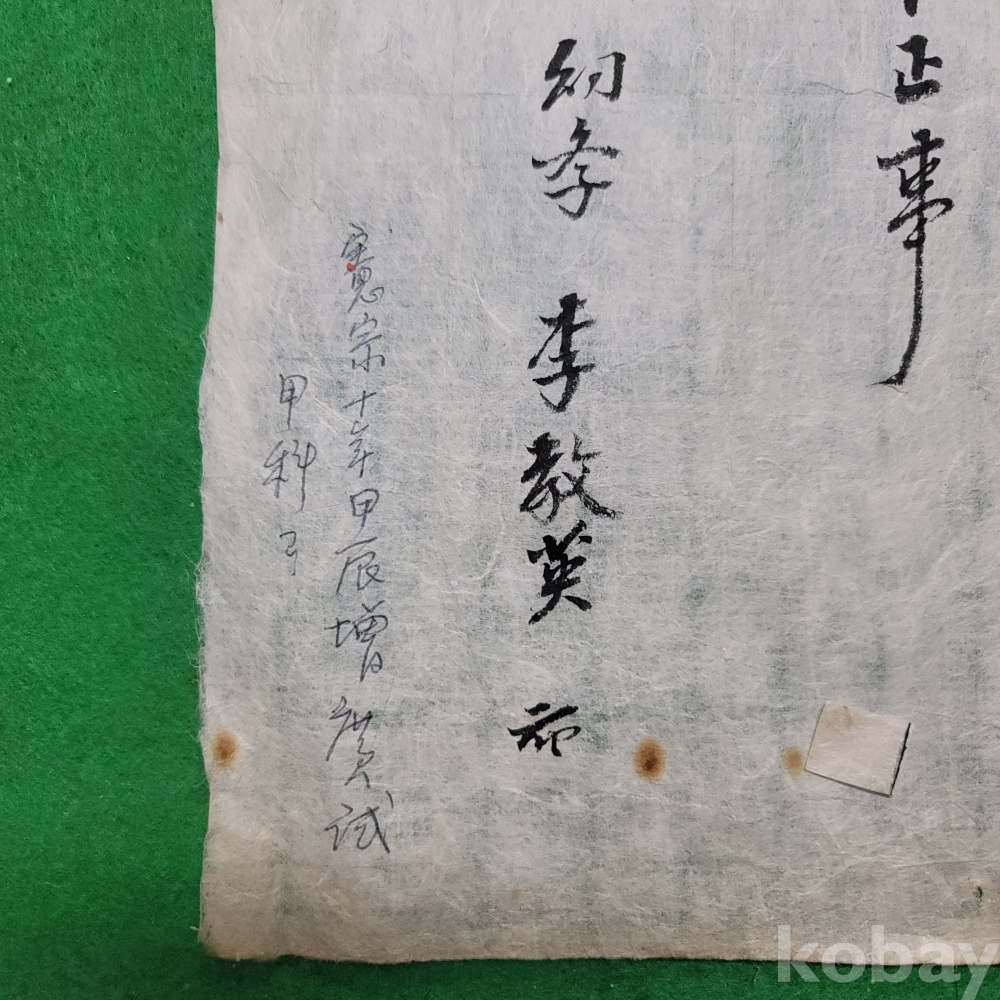 正事
幼季 李教英
憲宗十年甲辰增廣試
甲科
kobay